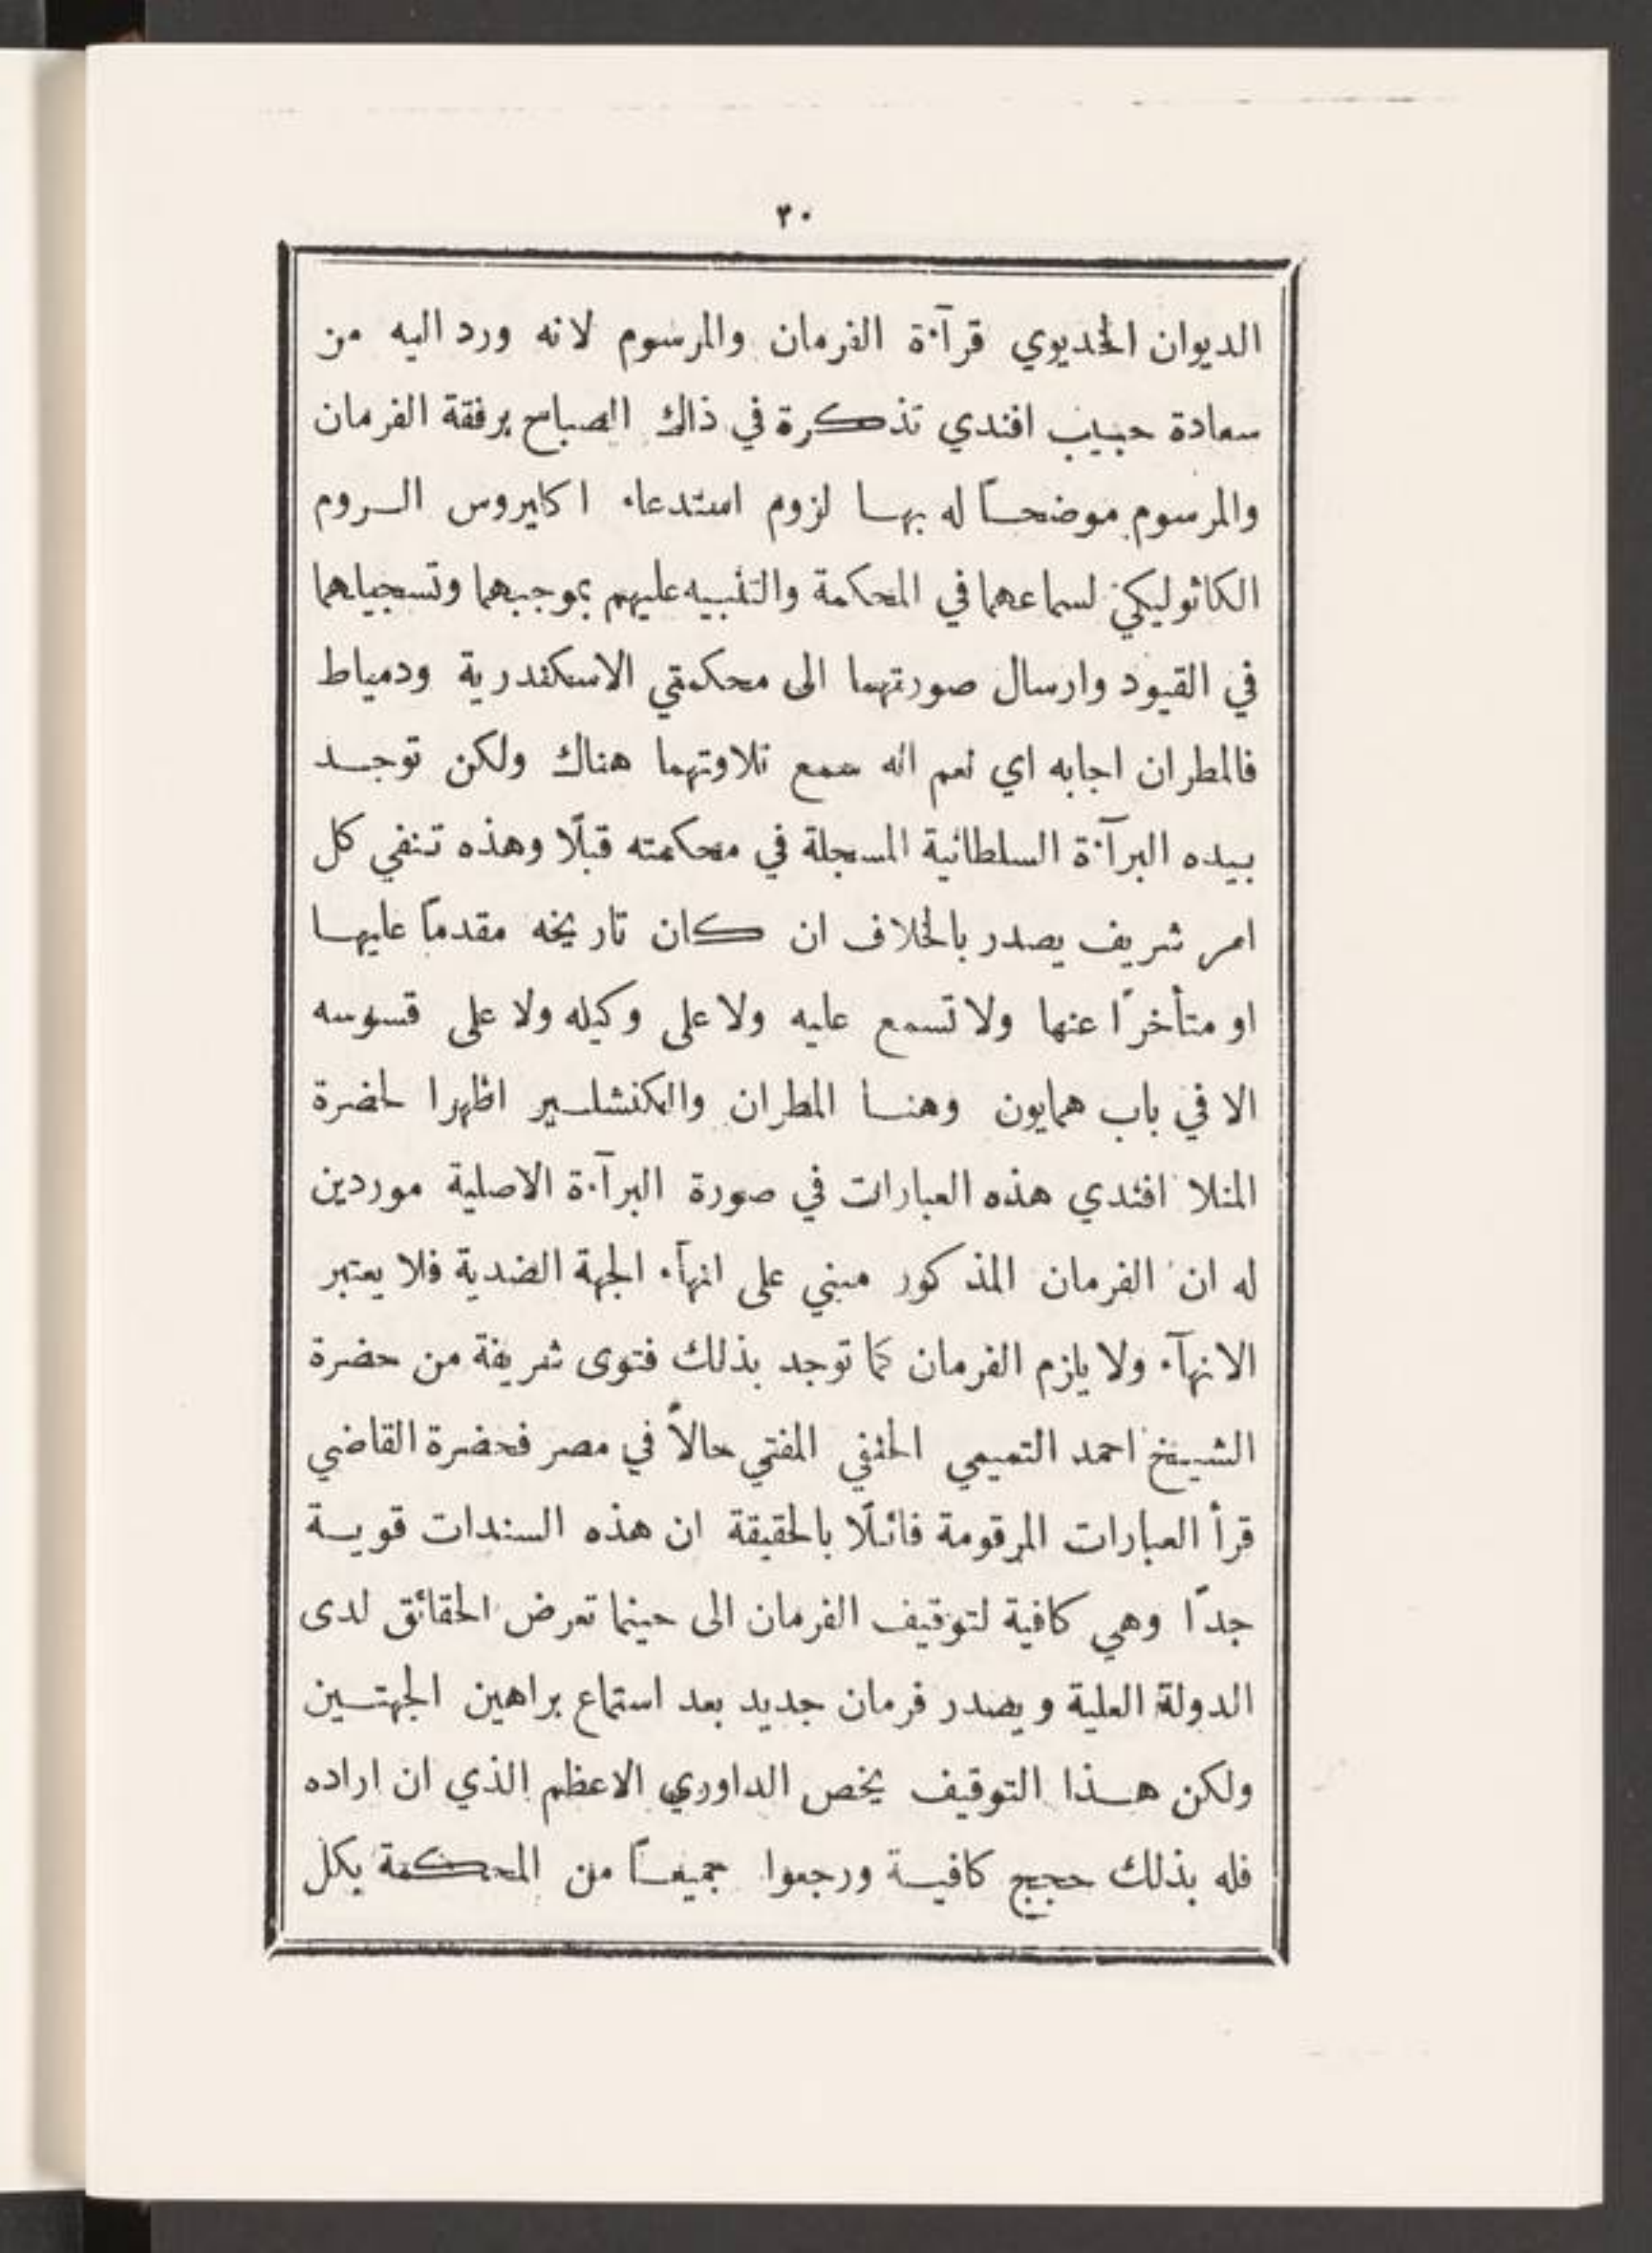 ٣٠
الديوان الخديوي قرآءة الفرمان والمرسوم لانه ورد اليه من
سعادة حبيب افندي تذكرة في ذاك الصباح برفقة الفرمان
والمرسوم موضحاً له بها لزوم استدعاء اكليروس الروم
الكاثوليكي لسماعهما في المحكمة والتنبيه عليهم بموجبهما وتسجيلهما
في القيود وارسال صورتهما الى محكمتي الاسكندرية ودمياط
فالمطران اجابه اي نعم انه سمع تلاوتهما هناك ولكن توجد
بيده البرآءة السلطانية المسجلة في محكمته قبلًا وهذه تنفي كل
امر شريف يصدر بالخلاف ان كان تاريخه مقدماً عليها
او متأخرًا عنها ولا تسمع عليه ولا على وكيله ولا على قسوسه
الا في باب همايون وهنا المطران والكنشلير اظهرا لحضرة
المنلا افندي هذه العبارات في صورة البرآءة الاصلية موردين
له ان الفرمان المذكور مبني على انهآء الجهة الضدية فلا يعتبر
الانهآء ولا يلزم الفرمان كما توجد بذلك فتوى شريفة من حضرة
الشيخ احمد التميمي الحنفي المفتي حالاً في مصر فحضرة القاضي
قرأ العبارات المرقومة قائلًا بالحقيقة ان هذه السندات قوية
جدًا وهي كافية لتوقيف الفرمان الى حينما تعرض الحقائق لدى
الدولة العلية ويصدر فرمان جديد بعد استماع براهين الجهتين
ولكن هذا التوقيف يخص الداوري الاعظم الذي ان اراده
فله بذلك حجج كافية ورجعوا جميعاً من المحكمة بكل